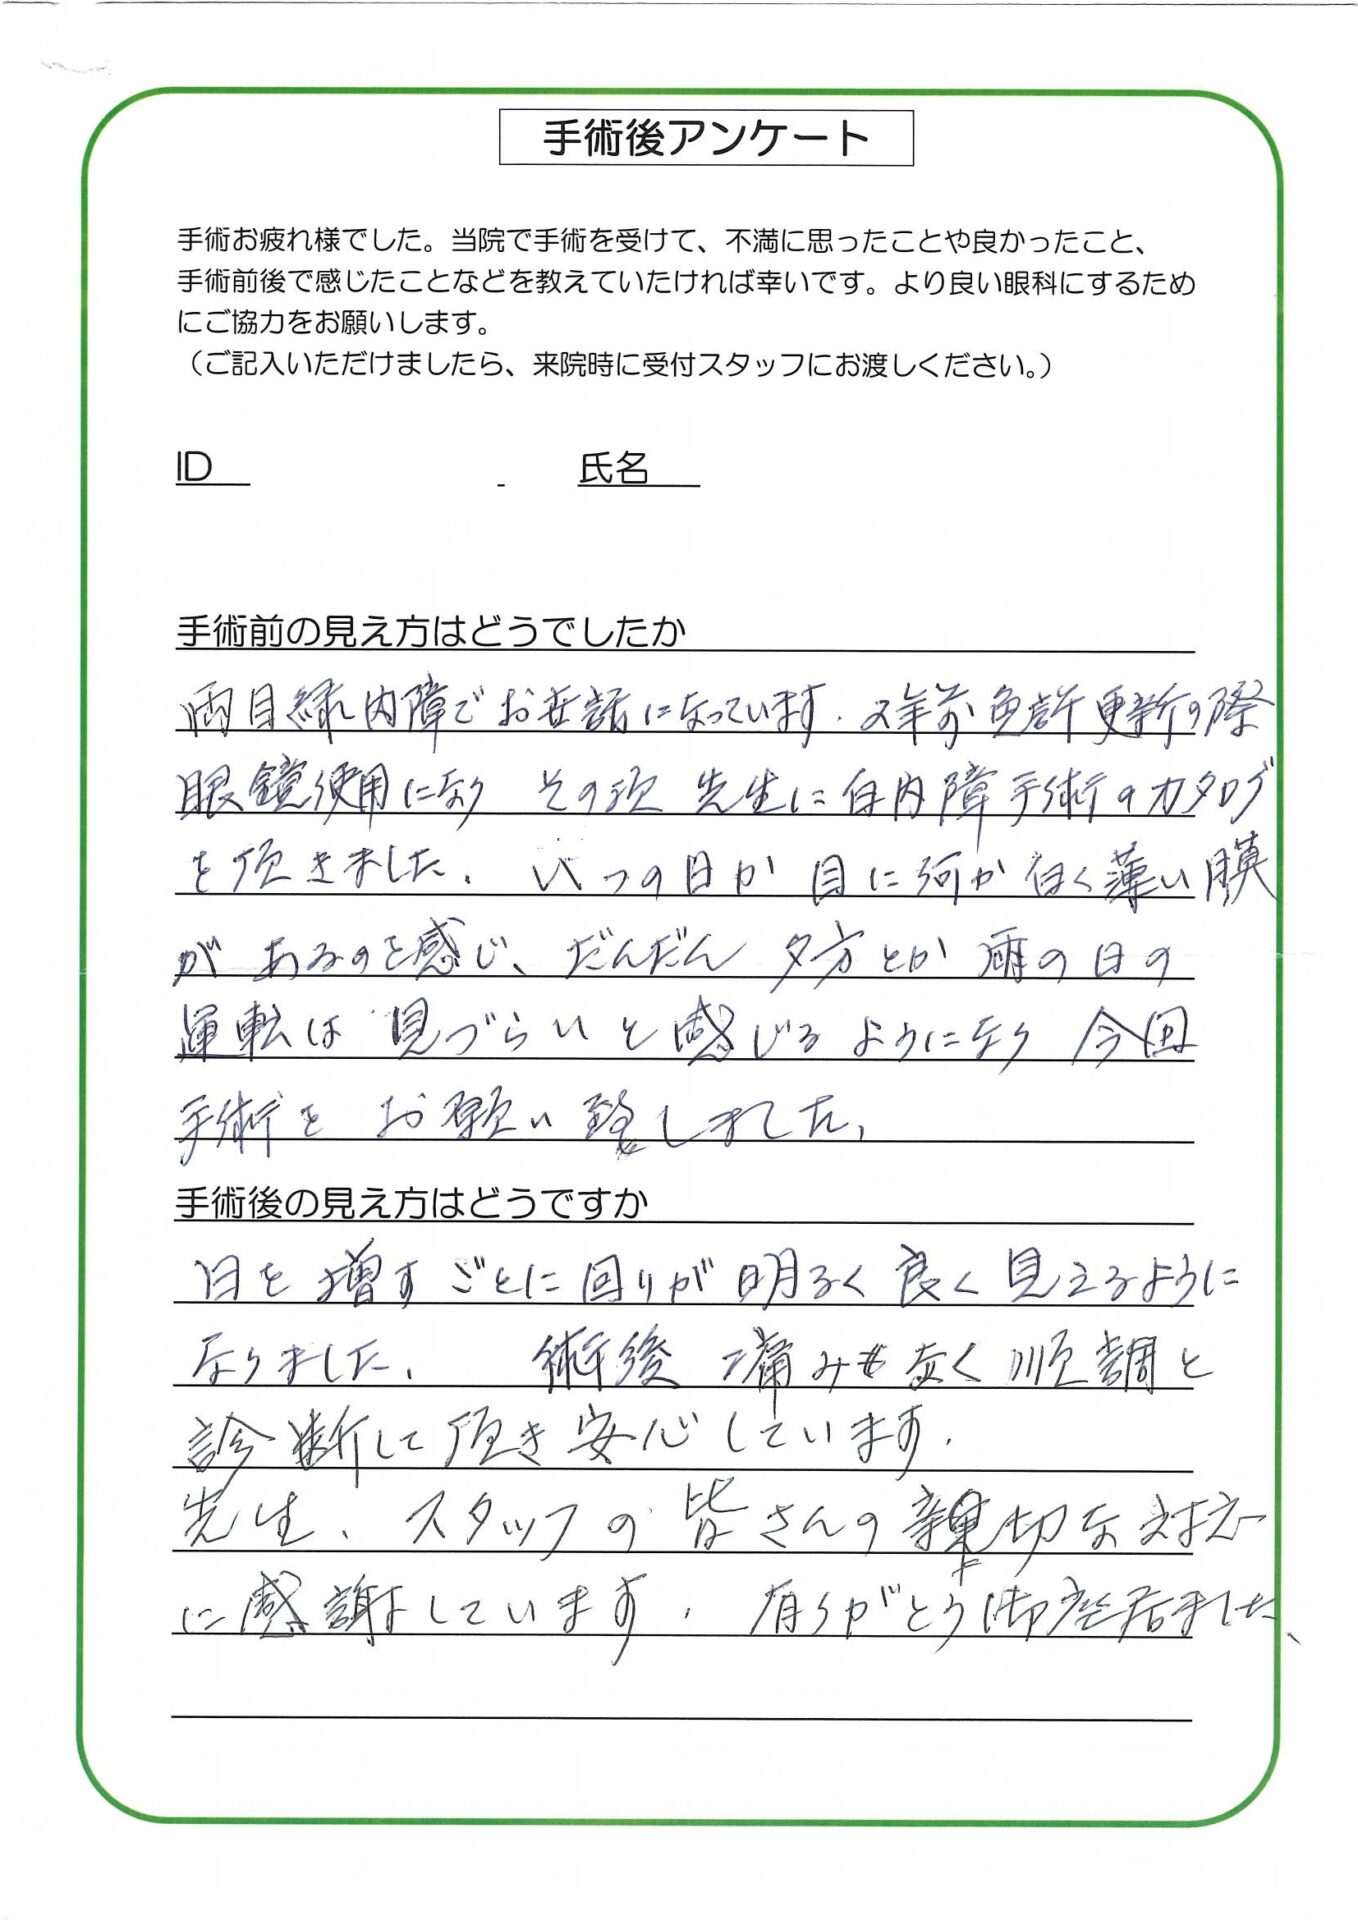 手術後アンケート
手術お疲れ様でした。当院で手術を受けて、不満に思ったことや良かったこと、
手術前後で感じたことなどを教えていたければ幸いです。より良い眼科にするため
にご協力をお願いします。
（ご記入いただけましたら、来院時に受付スタッフにお渡しください。）
ID 氏名
手術前の見え方はどうでしたか
両目緑内障でお世話になっています. 2年前免許更新の際
眼鏡使用になり その頃 先生に白内障手術のカタログ
を頂きました. いつの日か 目に何か白く薄い膜
が あるのを感じ、だんだん 夕方とか 雨の日の
運転は 見づらいと感じるようになり 今回
手術を お願い致しました.
手術後の見え方はどうですか
日を増すごとに回りが明るく良く見えるように
なりました. 術後 痛みもなく順調と
診断して頂き安心しています.
先生、スタッフの皆さんの親切な対応
に感謝しています. 有りがとう御座居ました、